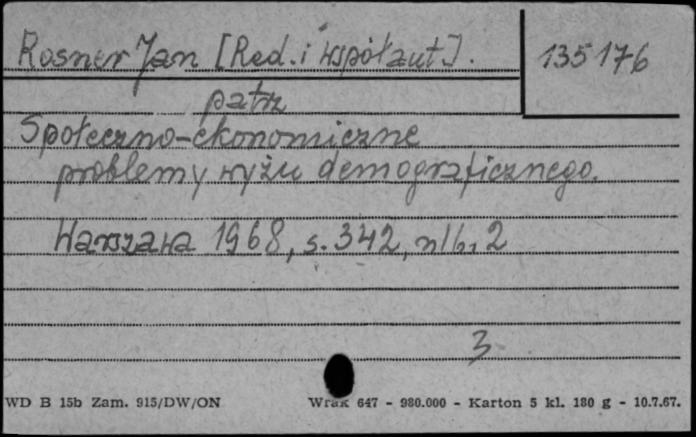 Rosner Jan [Red. i współaut].
135176
patrz
Społeczno-ekonomiczne
problemy wyżu demograficznego.
Warszawa 1968, s. 342, nlb. 2
3
WD B 15b Zam. 915/DW/ON Wrak 647 - 980.000 - Karton 5 kl. 180 g - 10.7.67.